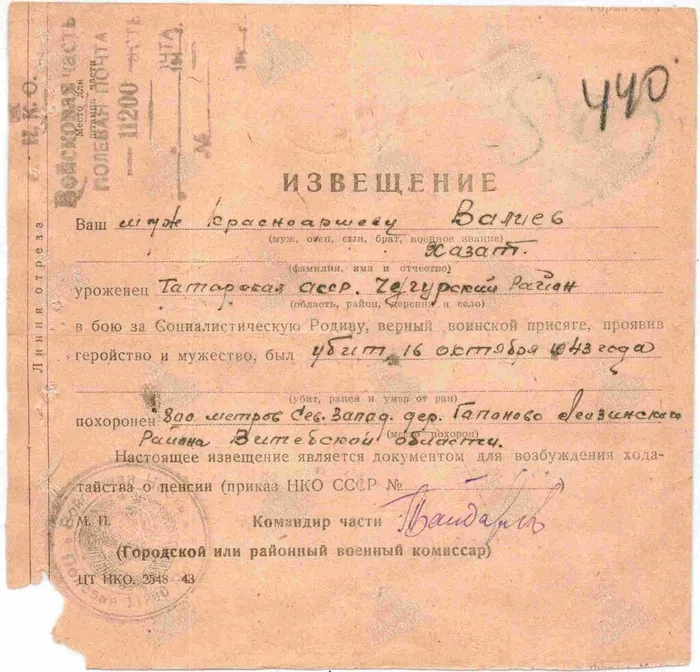 Н.К.О.
Войсковая часть
Место для
штампа части
ПОЛЕВАЯ ПОЧТА
11200
№
440
Линия отреза
ИЗВЕЩЕНИЕ
Ваш муж красноармеец Валиев
(муж, отец, сын, брат, военное звание)
Хазат.
(фамилия, имя и отчество)
уроженец Татарская асср.
(область, район, деревня и село)
в бою за Социалистическую Родину, верный воинской присяге, проявив
геройство и мужество, был убит 16 октября 1943 года
(убит, ранен и умер от ран)
похоронен 800 метров Сев. Запад. дер. Гапоново Лезинского
(место похорон)
Района Витебской области.
Настоящее извещение является документом для возбуждения хода-
тайства о пенсии (приказ НКО СССР №)
М. П. Командир части
(Городской или районный военный комиссар)
ЦТ НКО. 2548—43
Полевая 11200